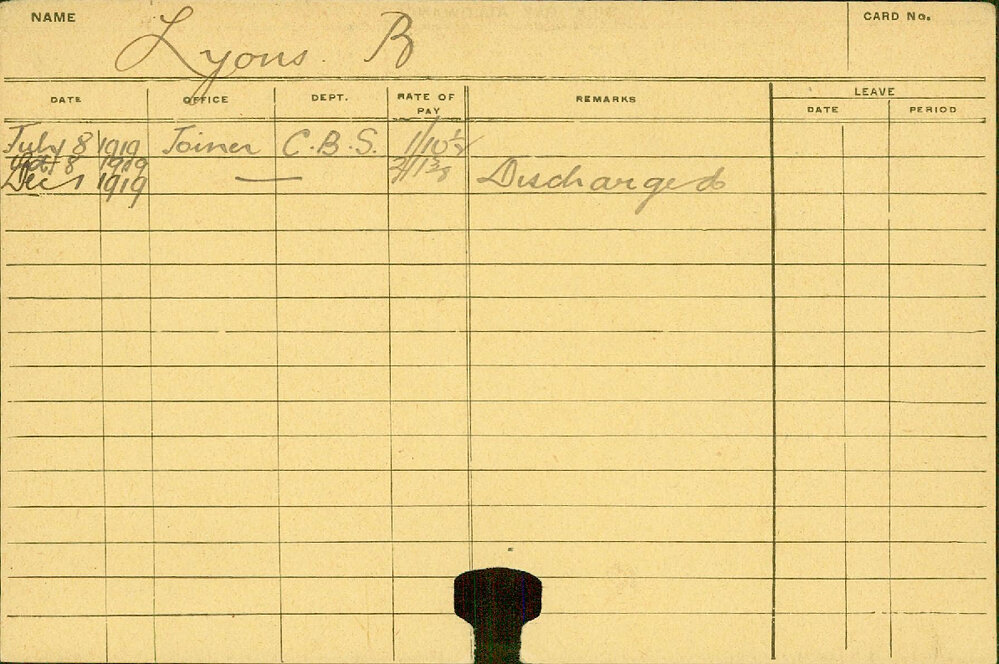 NAME Lyons. R CARD No.
DATE OFFICE DEPT. RATE OF PAY REMARKS LEAVE
DATE PERIOD
July 8 1919 Joiner C.B.S. 1/10½
Oct 8 1919
Dec 1 1919 — Discharged